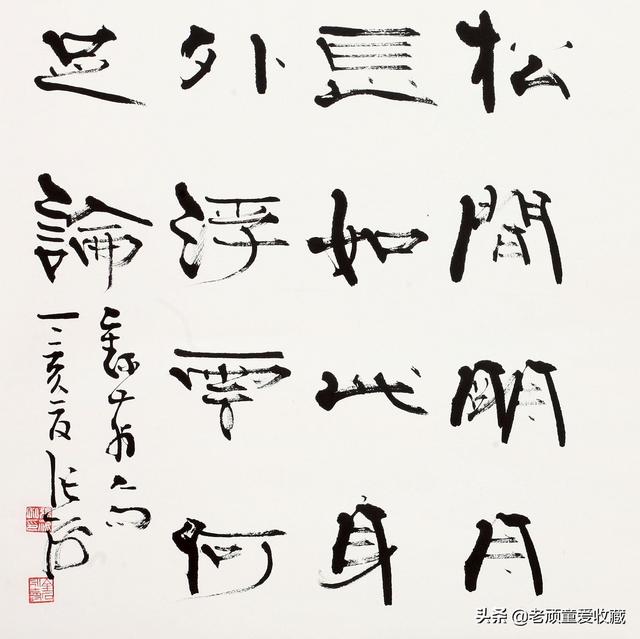 松間明月
長如此身
外浮雲何
足論
头条 @老顽童爱收藏